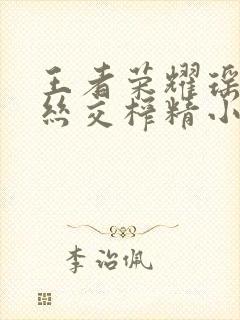 王者荣耀瑶
丝交榨精小
李治佩